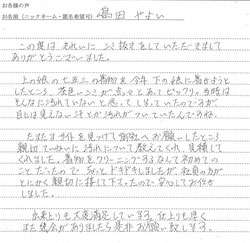 お客様の声
お名前（ニックネーム・匿名希望可） 島田 やよい
この度は きれいに シミ抜きをしていただきまして
ありがとうございました。
上の娘の七五三の着物を今年下の娘に着せようと
したところ、茶色いシミが点々とあってビックリ。当時は
そんなに汚れていないと思って しまっていたのですが
目には見えない汗とか汚れがついていたんですね。
たまたまサイトを見つけて御社へお願いしたところ
親切ていねいに汚れについて教えてくれ、見積して
くれました。着物をクリーニングするなんて初めての
ことだったので ちょっとドキドキしましたが、社員の方が
とにかく親切に接して下さったので、安心してお任せ
しました。
出来上りも大変満足しています。仕上りも早く
また機会がありましたら是非お願い致します。